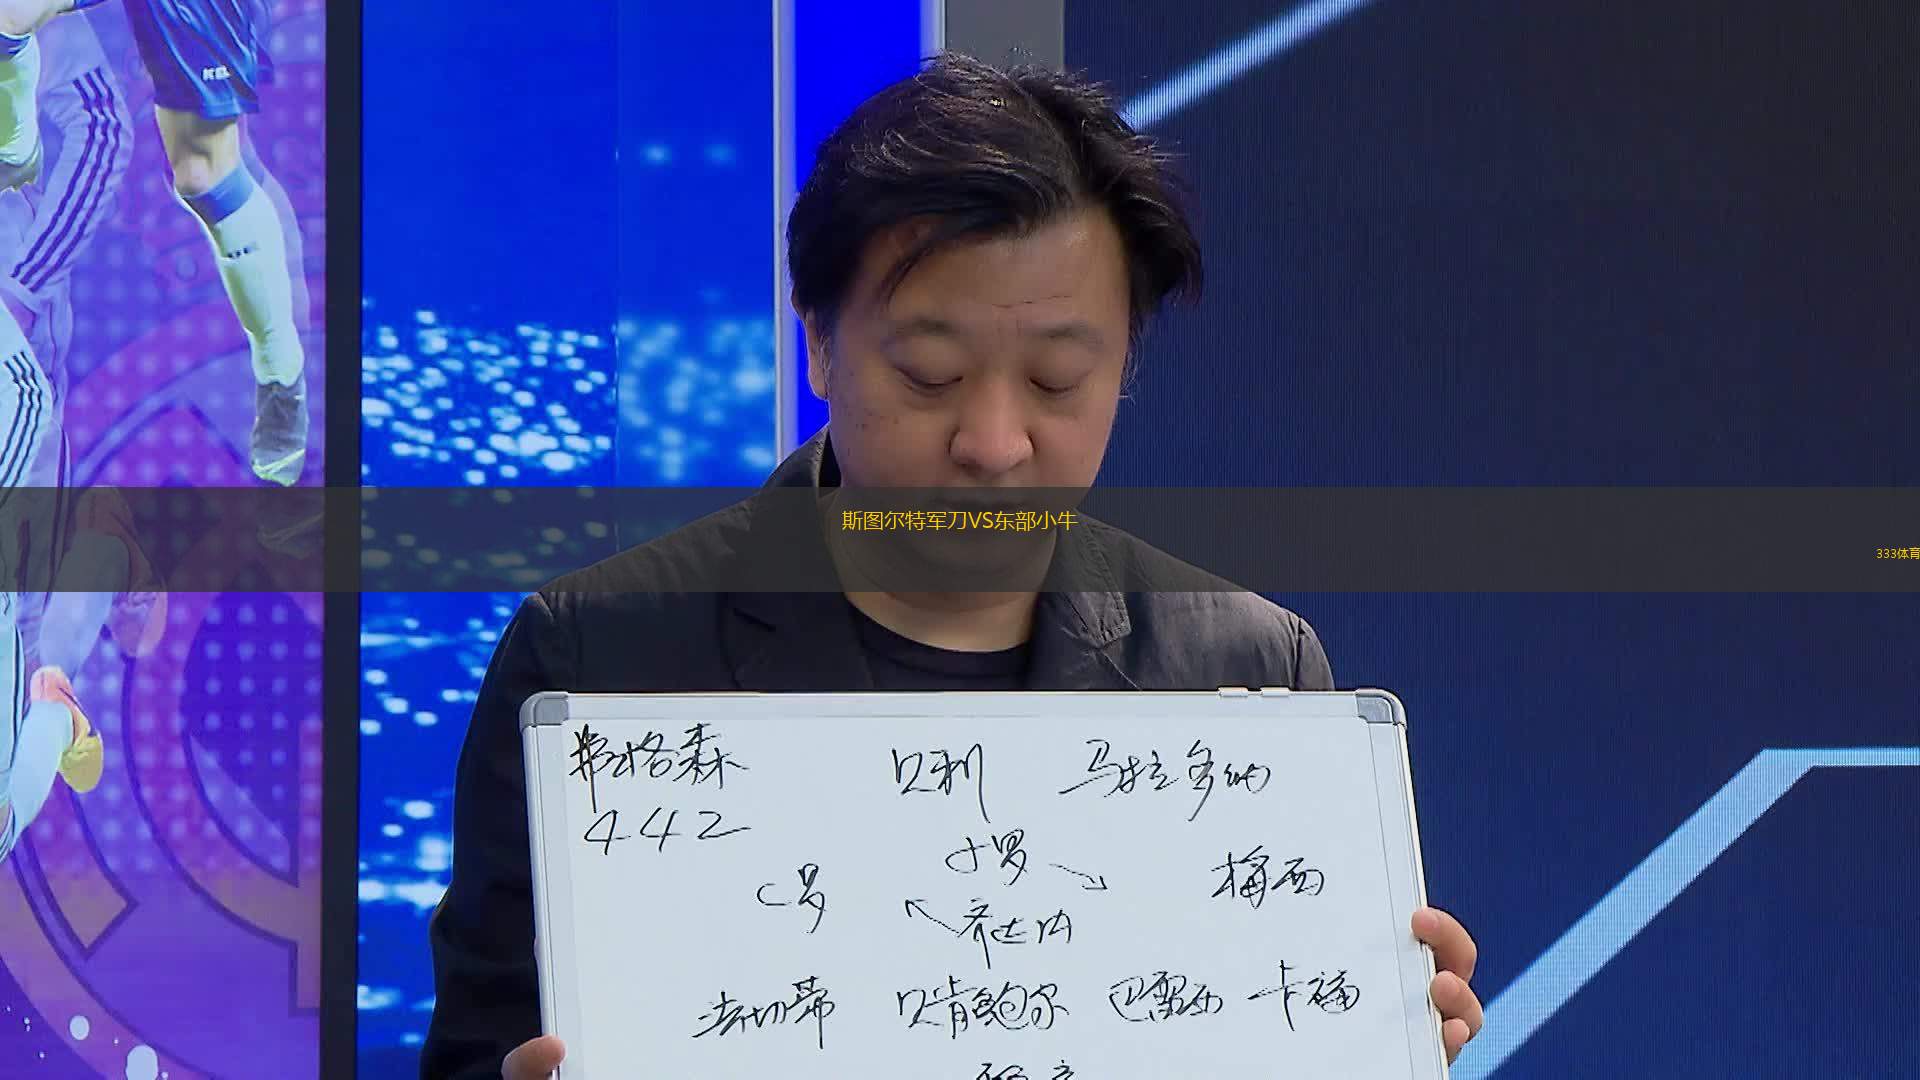 斯图尔特军刀VS东部小牛
333体育
弗格森 贝利 马拉多纳
442
小罗
C罗 梅西
齐达内
法切蒂 贝肯鲍尔 巴雷西 卡福